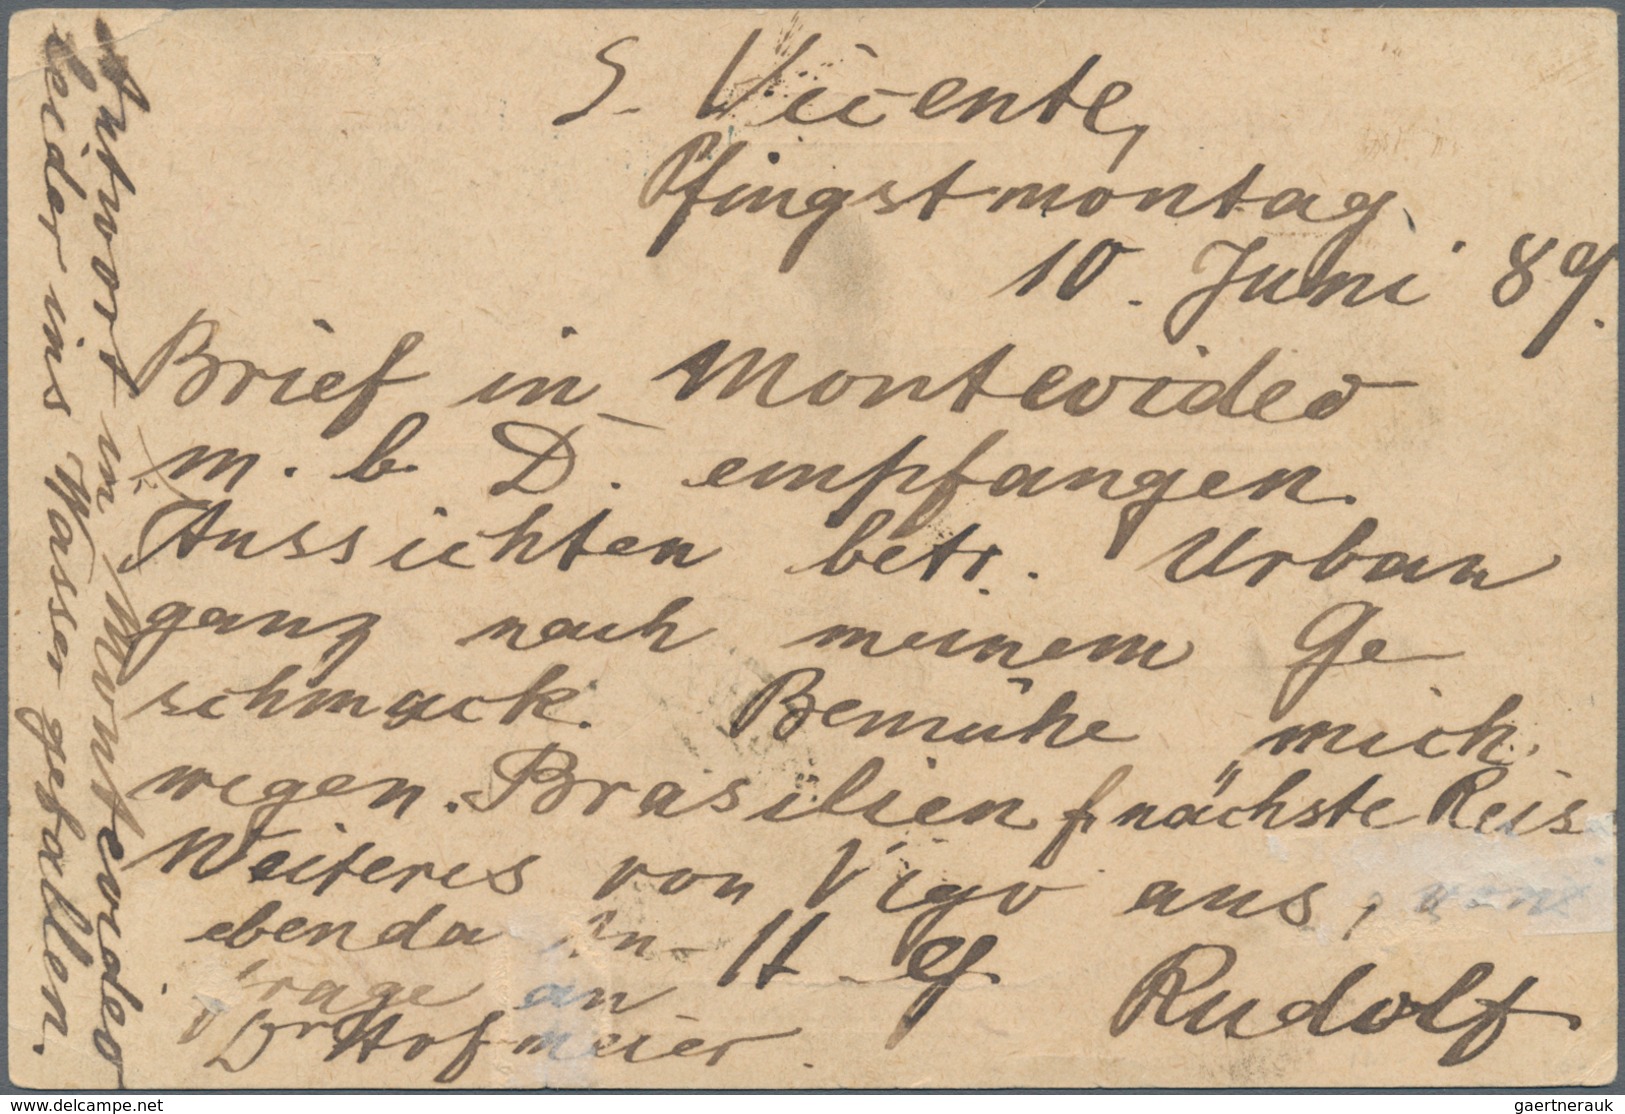 S. Vicente,
Pfingstmontag
10. Juni 89.
Brief in Montevideo
m. b. D. empfangen.
Aussichten betr. Urban
ganz nach meinem Ge
schmack. Bemühe mich
wegen Brasilien f. nächste Reis
Weiteres von Vigo aus, von
ebenda An-
frage an
Dr Hofmeier.
Rudolf
Antwort in Montevideo
leider ins Wasser gefallen.
delcampe.net
gaertnerauk